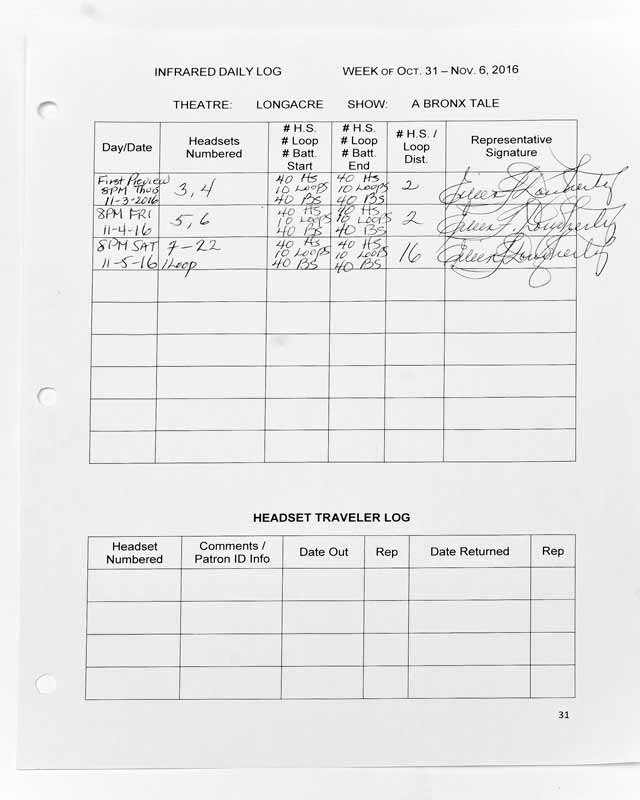 INFRARED DAILY LOG WEEK OF OCT. 31 – NOV. 6, 2016
THEATRE: LONGACRE SHOW: A BRONX TALE
Day/Date
Headsets
Numbered
# H.S.
# Loop
# Batt.
Start
# H.S.
# Loop
# Batt.
End
# H.S. /
Loop
Dist.
Representative
Signature
First Preview
8PM Thus
11-3-2016
3, 4
40 Hs
10 Loops
40 BS
40 Hs
10 Loops
40 BS
2
Eileen F. Dougherty
8PM FRI
11-4-16
5, 6
40 Hs
10 Loops
40 BS
40 Hs
10 Loops
40 BS
2
Eileen F. Dougherty
8PM SAT
11-5-16
7-22
1 Loop
40 Hs
10 Loops
40 BS
40 Hs
10 Loops
40 BS
16
Eileen F. Dougherty
HEADSET TRAVELER LOG
Headset
Numbered
Comments /
Patron ID Info
Date Out
Rep
Date Returned
Rep
31